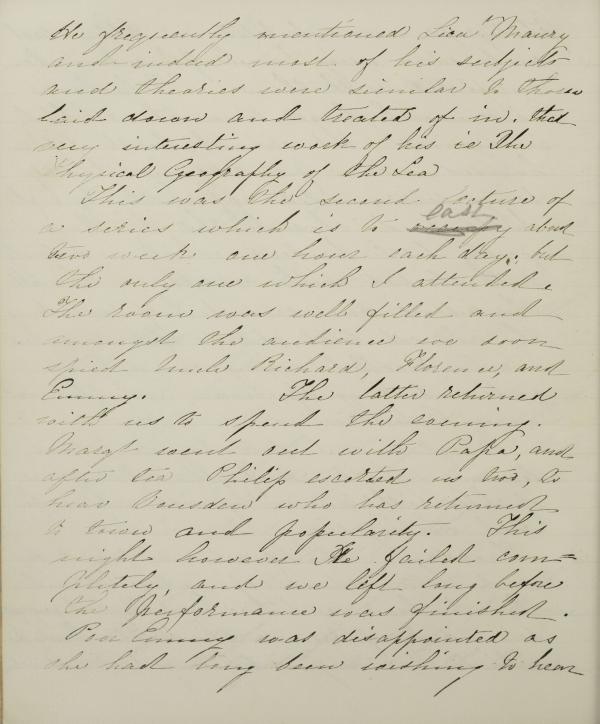 He frequently mentioned Lieut Maury
and indeed most of his subjects
and theories were similar to those
laid down and treated of in that
very interesting work of his ie The
Physical Geography of the Sea
This was the second lecture of
a series which is to last about
two weeks one hour each day, but
the only one which I attended.
The room was well filled and
amongst the audience we soon
spied Uncle Richard, Florence, and
Emmy. The latter returned
with us to spend the evening.
Margt went out with Papa, and
after tea Philip escorted us two, to
hear Dousden who has returned
to town and popularity. This
night however He failed com=
pletely, and we left long before
the performance was finished.
Poor Emmy was disappointed as
she had long been wishing to hear